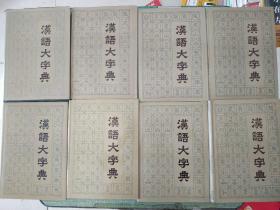 漢語大字典
漢語大字典
漢語大字典
漢語大字典
漢語大字典
漢語大字典
漢語大字典
漢語大字典